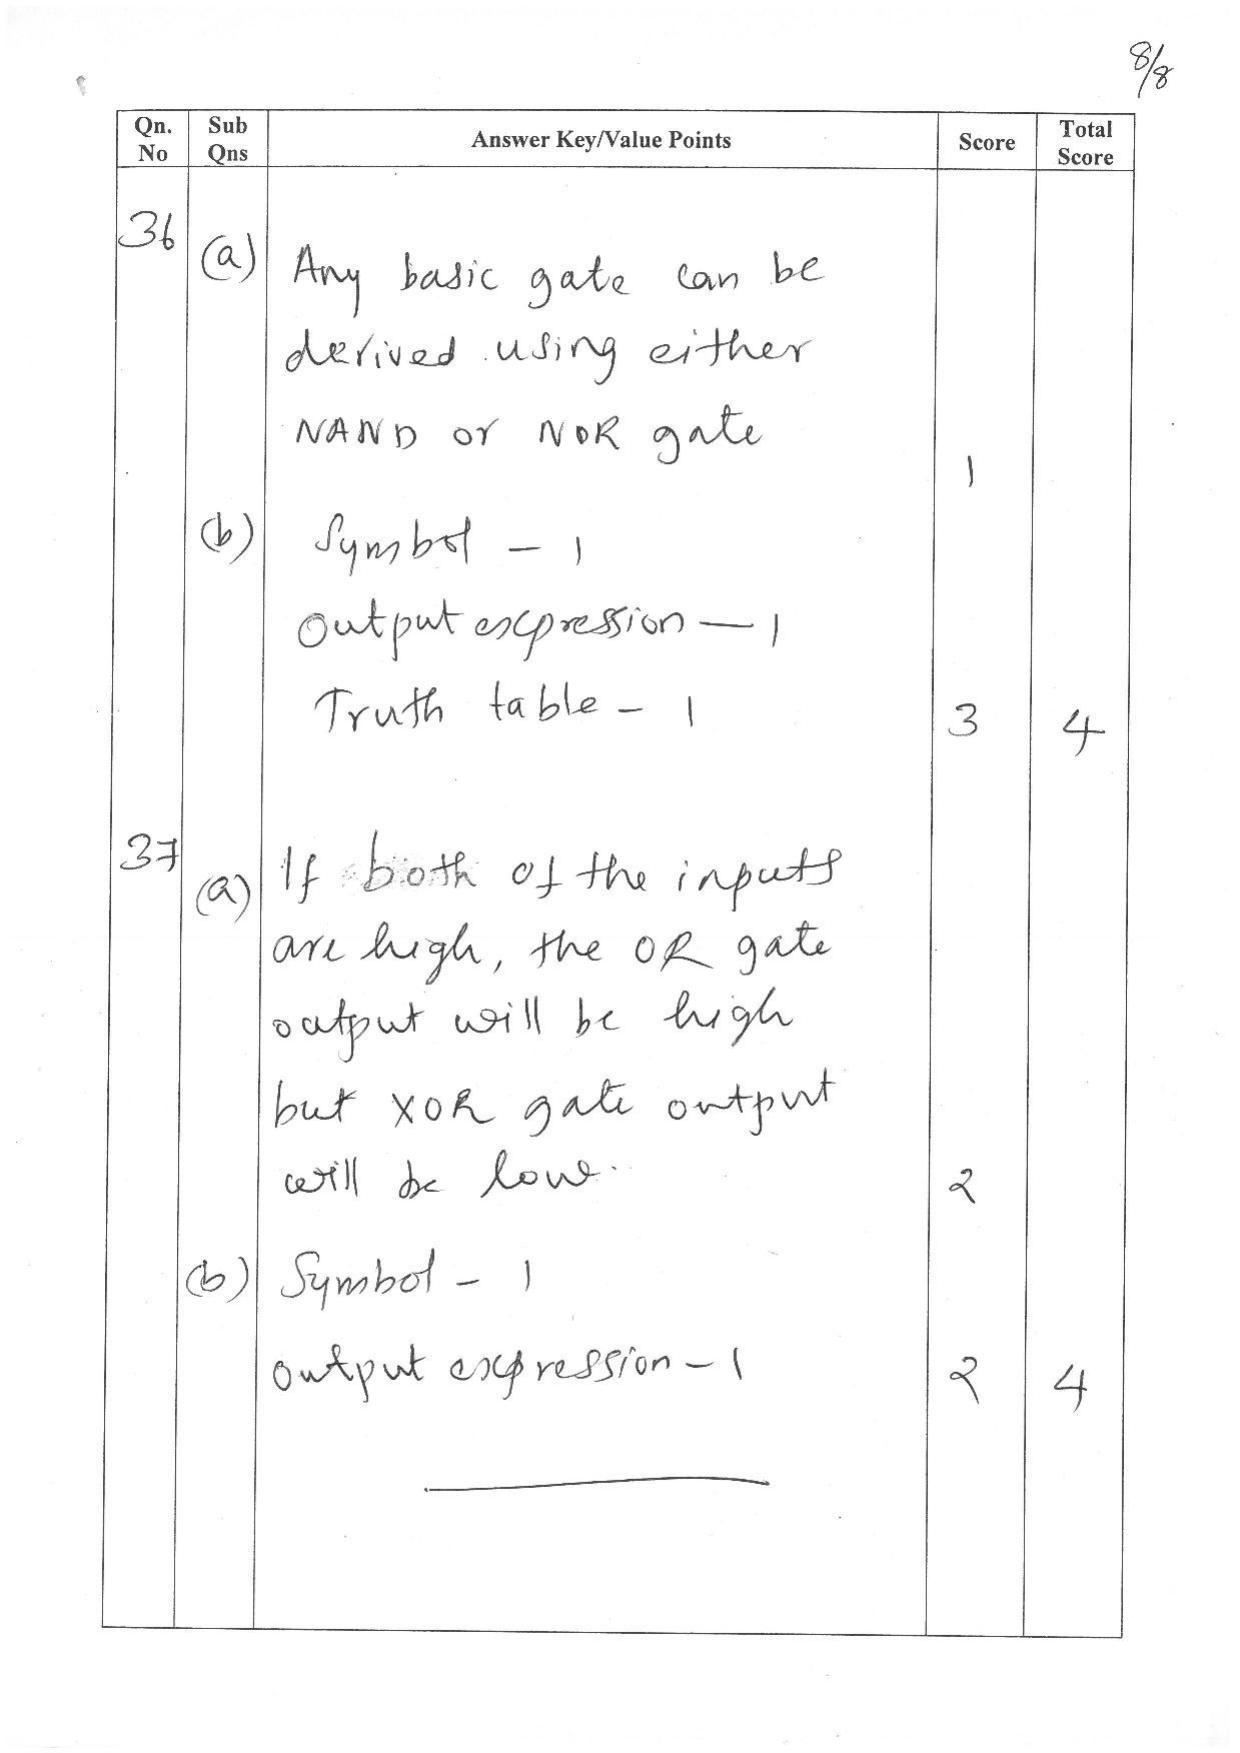 8/8
Qn. No Sub Qns Answer Key/Value Points Score Total Score
36 (a) Any basic gate can be
derived using either
NAND or NOR gate
1
(b) Symbol - 1
Output expression - 1
Truth table - 1 3 4
37 (a) If both of the inputs
are high, the OR gate
output will be high
but XOR gate output
will be low. 2
(b) Symbol - 1
output expression - 1 2 4